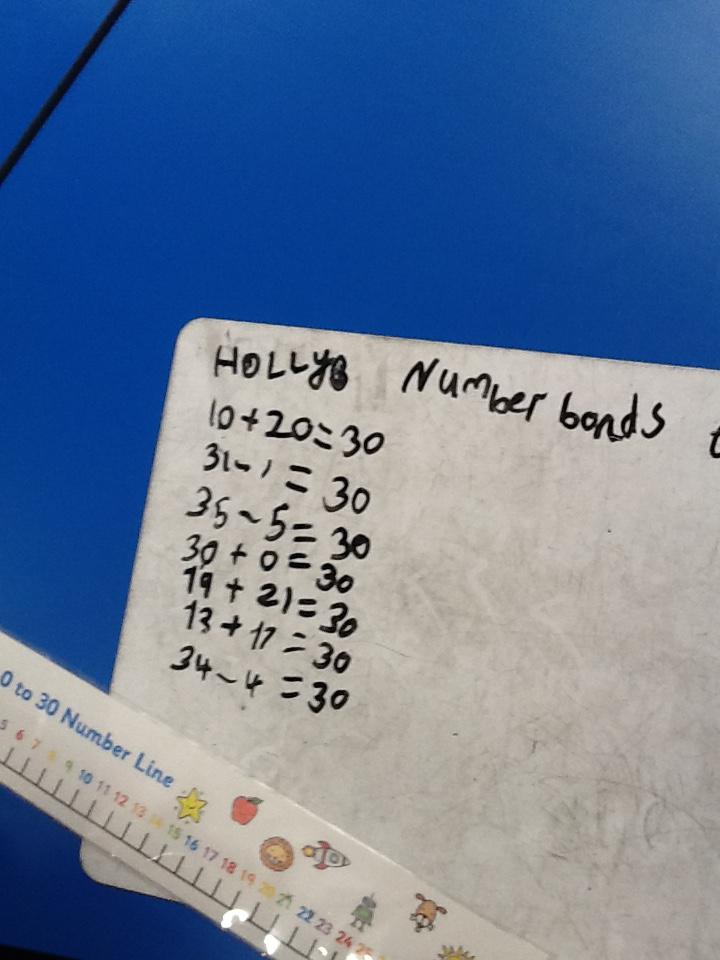 HOLLYB Number bonds
10+20=30
31-1=30
35-5=30
30+0=30
19+21=30
13+17=30
34-4=30
0 to 30 Number Line
5 6 7 8 9 10 11 12 13 14 15 16 17 18 19 20 21 22 23 24 25